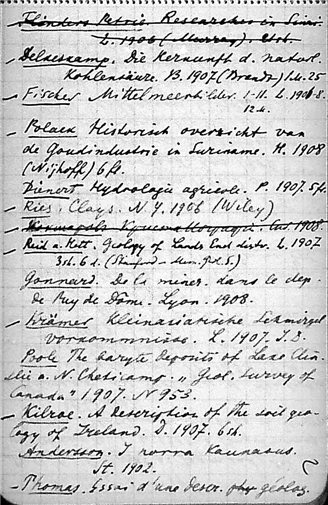 Flinders Petrie Researches in Sinai.
L. 1906 (Murray). 21sh.
– Delaskamp. Die Herkunft d. natürl.
Kohlensäure. B. 1907. (Brandt) 1 M. 25
– Fischer Mittelmeerbilder. I–II. L. 1908
12 M.
– Polack Historisch overzicht van
de Goudindustrie in Suriname. H. 1908
(Nijhoff) 6 fl.
Dienert Hydrologie agricole. P. 1907. 5 fr.
– Ries. Clays. N.Y. 1906 (Wiley)
1908.
– Reid a. Flett. Geology of Lands End distr. L. 1907
3 sh. 6 d.
Gonnard. De la minér. dans le dep.
de Puy de Dôme. Lyon. 1908.
– Krämer Kleinasiatische Schmirgel
vorkommnisse. L. 1907.
Poole The baryte deposits of Lake Ain-
slie a. N. Cheticamp. „Geol. Survey of
Canada" 1907. N 953.
– Kilroe. A Description of the soil geo-
logy of Ireland. D. 1907. 6 sh.
Andersson. I norra Kaukasus.
St. 1902.
– Thomas. Essai d'une descr. géolog.